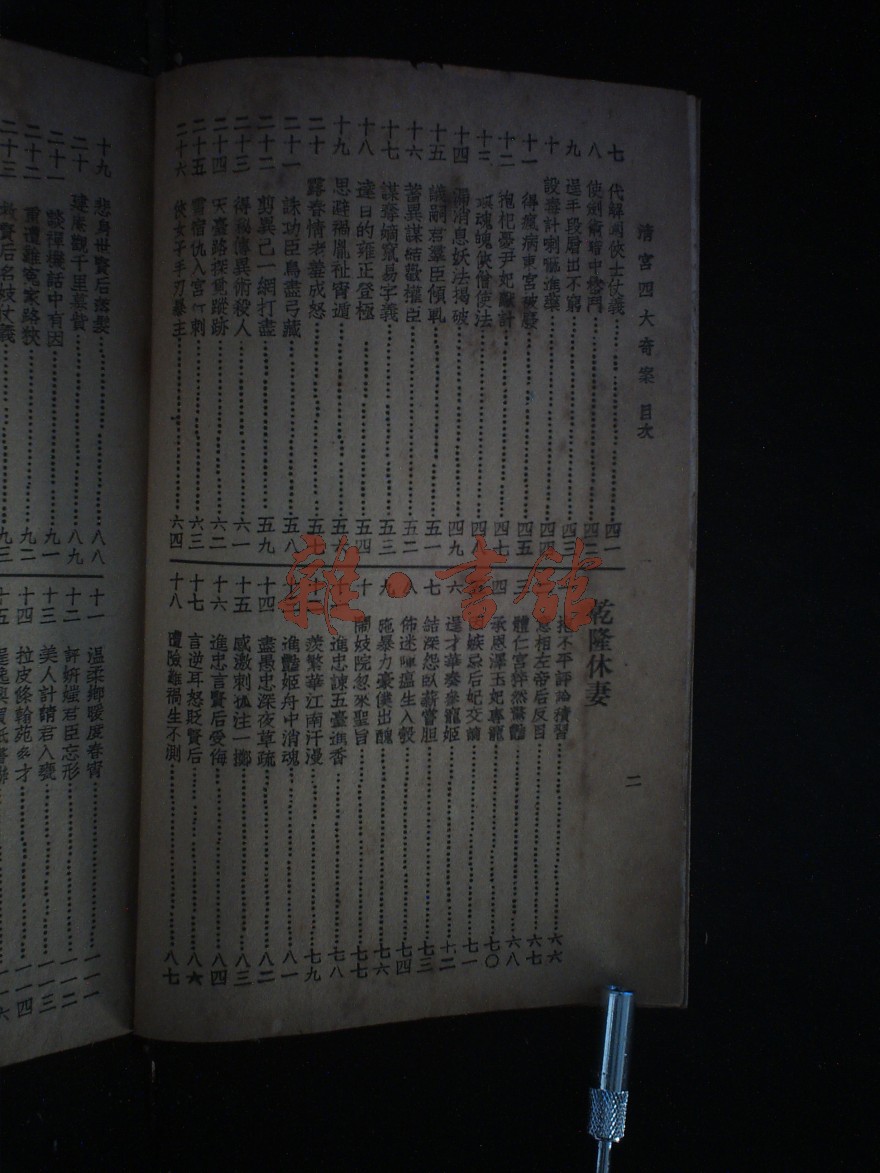 清宮四大奇案 目次
二
七 代解圍俠士仗義 四一
八 使劍術暗中 四二
九 逞手段層出不窮 四三
十 設毒計喇嘛進藥 四四
十一 得瘋病東宮被廢 四五
十二 抱杞憂尹妃獻計 四七
十三 魂魄俠僧使法 四八
十四 漏消息妖法揭破 四九
十五 議嗣君羣臣傾軋 五一
十六 蓄異謀結歡權臣 五二
十七 謀奪嫡竄易字義 五三
十八 達目的雍正登極 五四
十九 思避禍胤祉宵遁 五六
二十 露春情老
成怒 五七
二十一 誅功臣鳥盡弓藏 五八
二十二 剪異己一網打盡 五九
二十三 得祕傳異術殺人 六一
二十四 天臺路探重蹤跡 六二
二十五 雪宿仇入宮行刺 六三
二十六 俠女子手刃暴主 六四
乾隆休妻
抱不平評論積習 六六
意相左帝后反目 六七
三 體仁宮猝然驚豔 六八
四 承恩澤玉妃專寵 七〇
嫉忌后妃交謫 七一
六 逞才華奏參寵姬 七二
七 結深怨臥薪嘗胆 七三
八 佈迷陣瘟生入彀 七四
九 施暴力豪僕出醜 七六
十 鬧妓院忽來聖旨 七七
十一 進忠諫五臺進香 七八
十二 羨繁華江南汗漫 七九
十三 進豔姬舟中消魂 八一
十四 盡愚忠深夜草疏 八二
十五 感激刺孤注一擲 八三
十六 進忠言賢后受侮 八四
十七 言逆耳怒貶賢后 八六
十八 遭險難禍生不測 八七
十九 悲身世賢后落髮 八八
二十 建庵觀千里募貲 八九
二十一 談禪機話中有因 九一
二十二 重遭難冤家路狹 九二
二十三 救賢后名妓仗義 九三
十一 溫柔鄉暖度春宵 一一一
十二 評妍媸君臣忘形 一一二
十三 美人計請君入甕 一一三
十四 拉皮條翰苑多才 一一四
十五
雜·書館